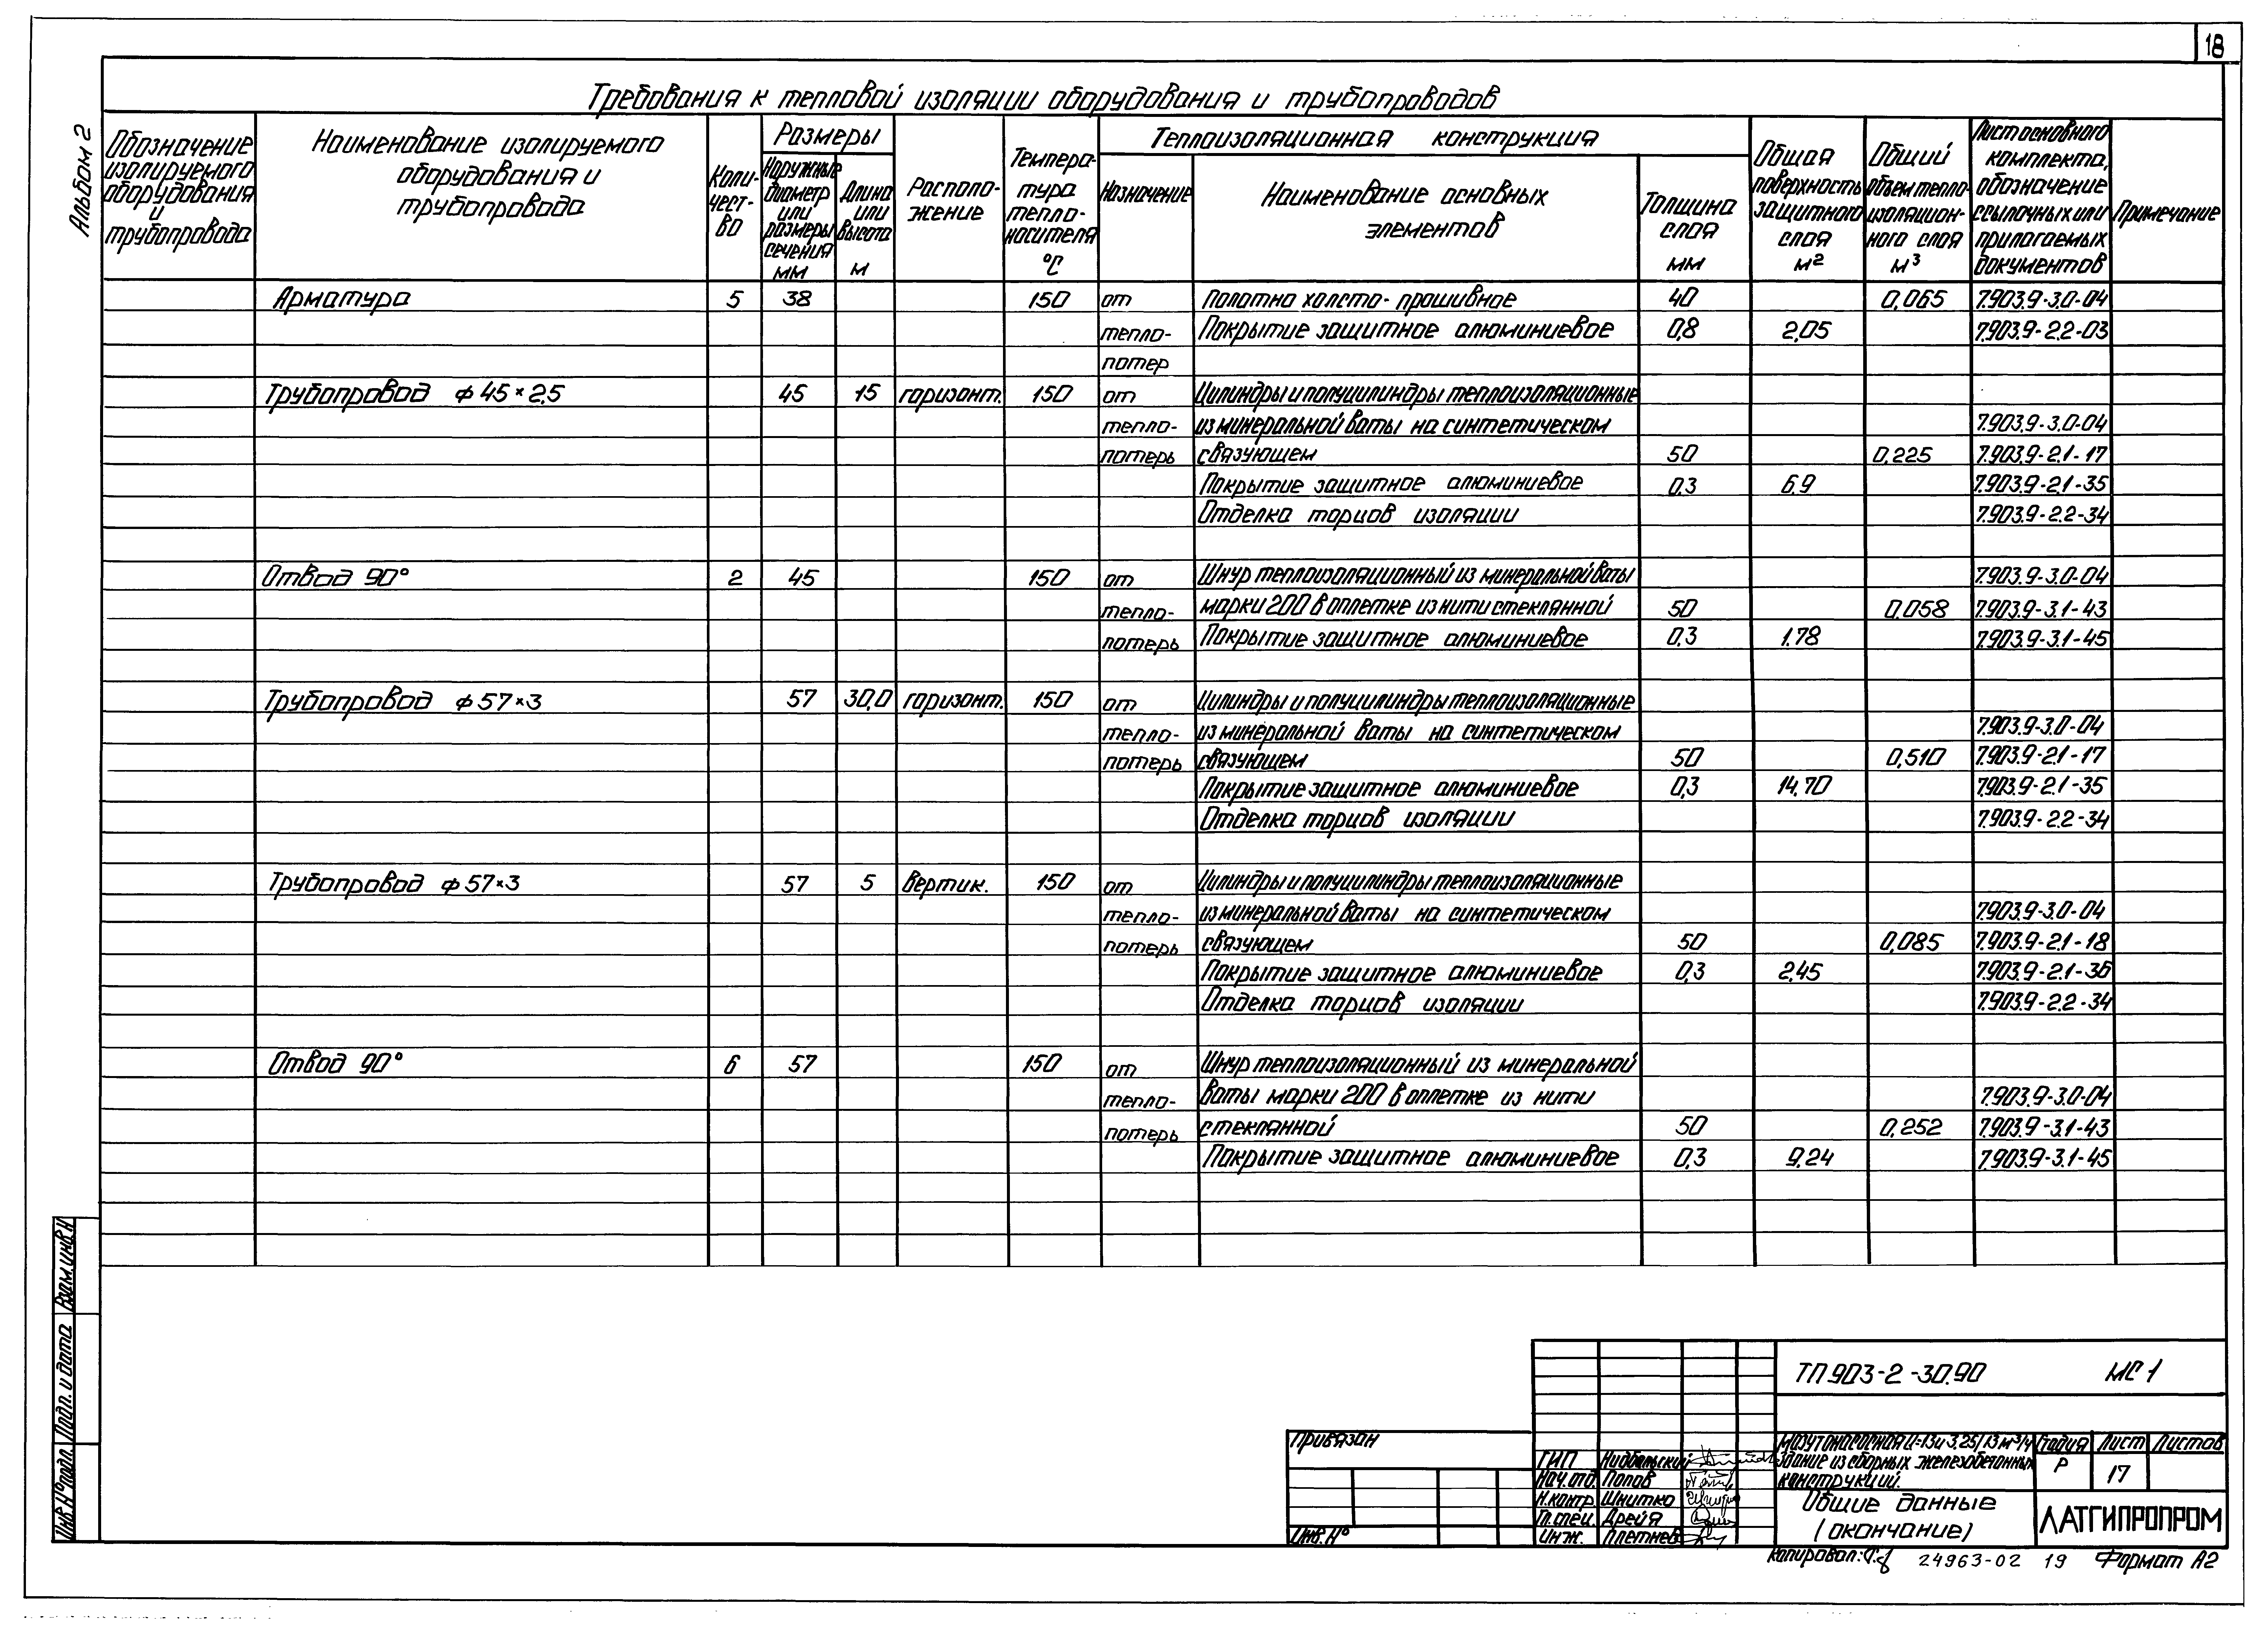 18
Альбом 2
Требования к тепловой изоляции оборудования и трубопроводов
Обозначение изолируемого оборудования и трубопровода
Наименование изолируемого оборудования и трубопровода
Коли-чест-во
Размеры
Наружные диаметр или размеры сечения мм
Длина или высота м
Располо-жение
Темпера-тура тепло-носителя °С
Теплоизоляционная конструкция
Назначение
Наименование основных элементов
Толщина слоя мм
Общая поверхность защитного слоя м²
Общий объем тепло-изоляцион-ного слоя м³
Лист основного комплекта, обозначение ссылочных или прилагаемых документов
Примечание
Арматура 5 38 150 от Полотно холсто-прошивное 40 0,065 7.903.9-3.0-04
тепло- Покрытие защитное алюминиевое 0,8 2,05 7.903.9-2.2-03
потер
Трубопровод ф 45×2,5 45 15 горизонт. 150 от Цилиндры и полуцилиндры теплоизоляционные
тепло- из минеральной ваты на синтетическом 7.903.9-3.0-04
потерь связующем 50 0,225 7.903.9-2.1-17
Покрытие защитное алюминиевое 0,3 6,9 7.903.9-2.1-35
Отделка торцов изоляции 7.903.9-2.2-34
Отвод 90° 2 45 150 от Шнур теплоизоляционный из минеральной ваты 7.903.9-3.0-04
тепло- марки 200 в оплетке из нити стеклянной 50 0,058 7.903.9-3.1-43
потерь Покрытие защитное алюминиевое 0,3 1,78 7.903.9-3.1-45
Трубопровод ф 57×3 57 30,0 горизонт. 150 от Цилиндры и полуцилиндры теплоизоляционные
тепло- из минеральной ваты на синтетическом 7.903.9-3.0-04
потерь связующем 50 0,510 7.903.9-2.1-17
Покрытие защитное алюминиевое 0,3 14,70 7.903.9-2.1-35
Отделка торцов изоляции 7.903.9-2.2-34
Трубопровод ф 57×3 57 5 вертик. 150 от Цилиндры и полуцилиндры теплоизоляционные
тепло- из минеральной ваты на синтетическом 7.903.9-3.0-04
потерь связующем 50 0,085 7.903.9-2.1-18
Покрытие защитное алюминиевое 0,3 2,45 7.903.9-2.1-36
Отделка торцов изоляции 7.903.9-2.2-34
Отвод 90° 6 57 150 от Шнур теплоизоляционный из минеральной
тепло- ваты марки 200 в оплетке из нити 7.903.9-3.0-04
потерь стеклянной 50 0,252 7.903.9-3.1-43
Покрытие защитное алюминиевое 0,3 9,24 7.903.9-3.1-45
Взам.инв.н
Подп. и дата
Инв.Н°подл.
ТП 903-2-30.90 МС 1
Привязан
Инв.Н°
ГИП Нидбальский
Нач.отд. Попов
Н.контр. Шнитко
Гл.спец. Дрейя
Инж. Плетнев
Мазутонасосная Q=13и3,25/13 м³/ч
Здание из сборных железобетонных
конструкций.
Стадия Лист Листов
Р 17
Общие данные
(окончание)
ЛАТГИПРОПРОМ
Копировал: 24963-02 19 Формат А2